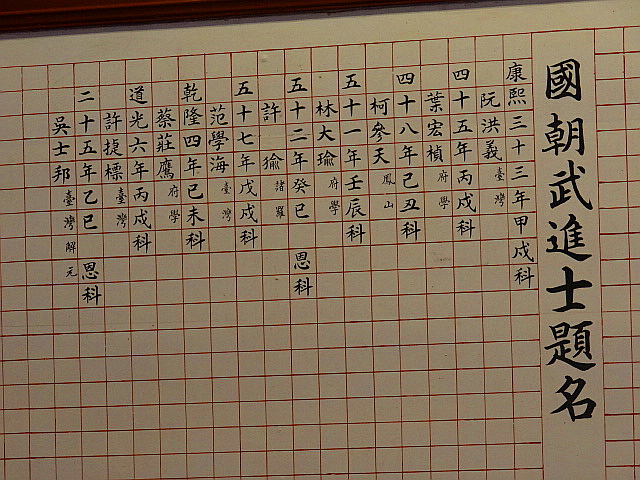 國朝武進士題名
康熙三十三年甲戍科
阮洪義 臺灣
四十五年丙戍科
葉宏楨 府學
四十八年己丑科
柯參天 鳳山
五十一年壬辰科
林大瑜 府學
五十二年癸巳 恩科
許瑜 諸羅
五十七年戊戍科
范學海 臺灣
乾隆四年己未科
蔡莊鷹 府學
道光六年丙戍科
許捷標 臺灣
二十五年乙巳 恩科
吳士邦 臺灣解元